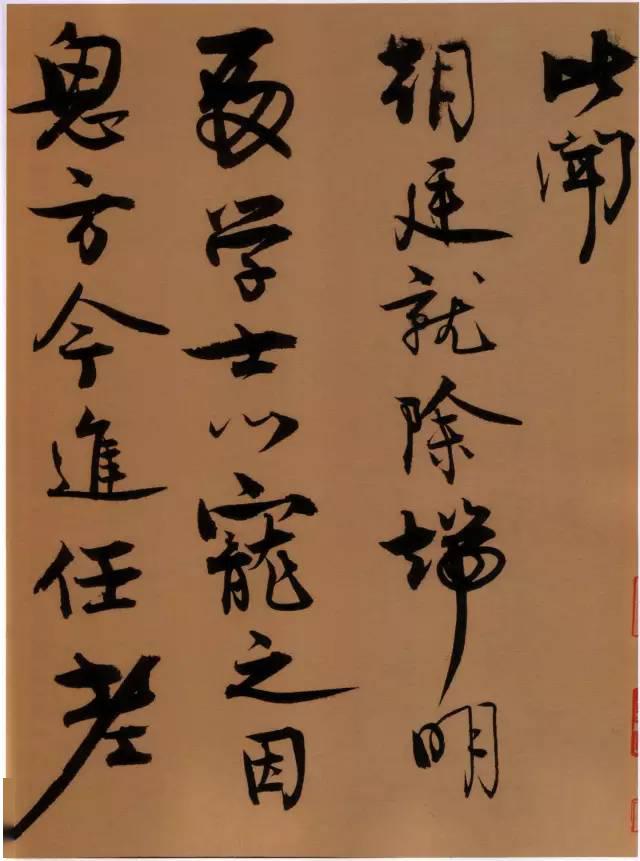 比聞
朝廷就除端明
殿学士以寵之因
思方今進任